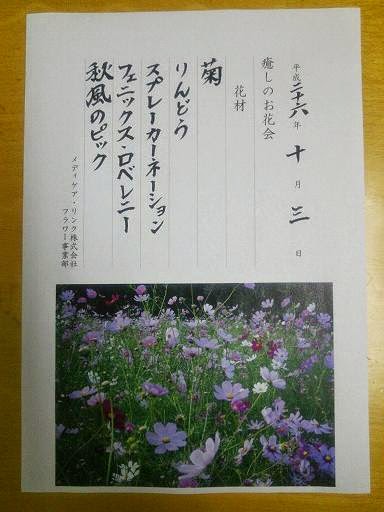 平成二十六年 十月 三日
癒しのお花会
花材
菊
りんどう
スプレーカーネーション
フェニックス・ロベレニー
秋風のピック
メディケア・リンク株式会社
フラワー事業部